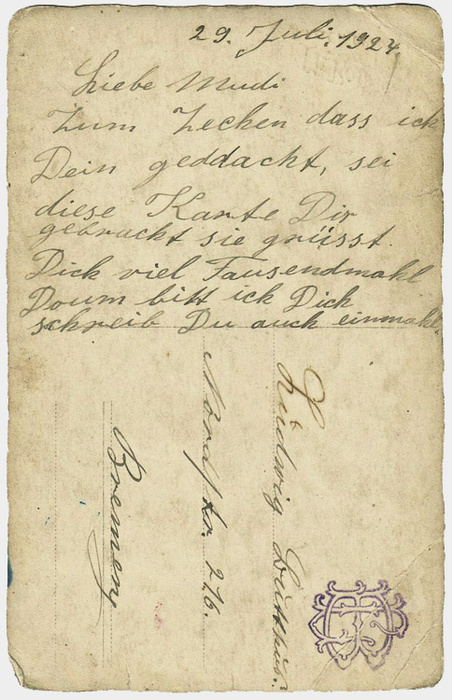 29. Juli. 1924.
Liebe Mudi
Zum Zecken dass ich
Dein geddacht, sei
diese Karte Dir
gebracht sie grüsst.
Dich viel Tausendmahl
Doum bitt ich Dich
schreib Du auch einmahl.
Ludwig
Nordstr. 276.
Bremen